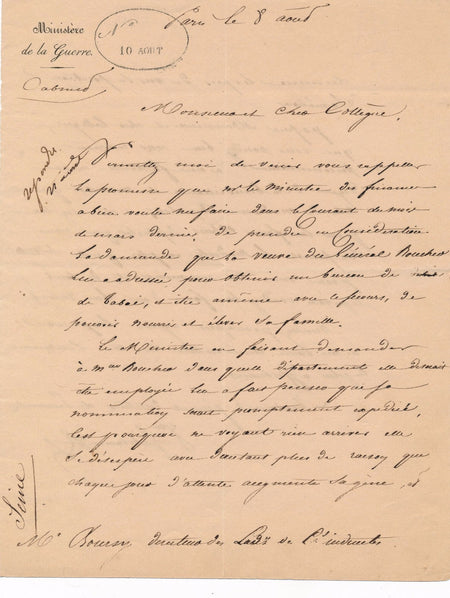 Paris le 8 août
Ministère
de la Guerre.
No
10 AOUT
Cabinet
Monsieur et cher Collègue,
répondre
Permettez moi de venir vous rappeler
la promesse que Mr le Ministre des finances
a bien voulu me faire dans le Courant du mois
de mars dernier, de prendre en Considération
la demande que la veuve du Général
lui a adressée pour obtenir un bureau de
de Tabac, et être à même avec ce secours, de
pouvoir nourrir et élever sa famille.
Le Ministre en faisant demander
à Mme dans quel département elle désirait
être employée lui a fait penser que sa
nomination serait promptement expédiée,
C'est pourquoi ne voyant rien arriver elle
se désespère avec d'autant plus de raison que
chaque jour d'attente augmente sa gêne, et
Seine
Mr directeur des de